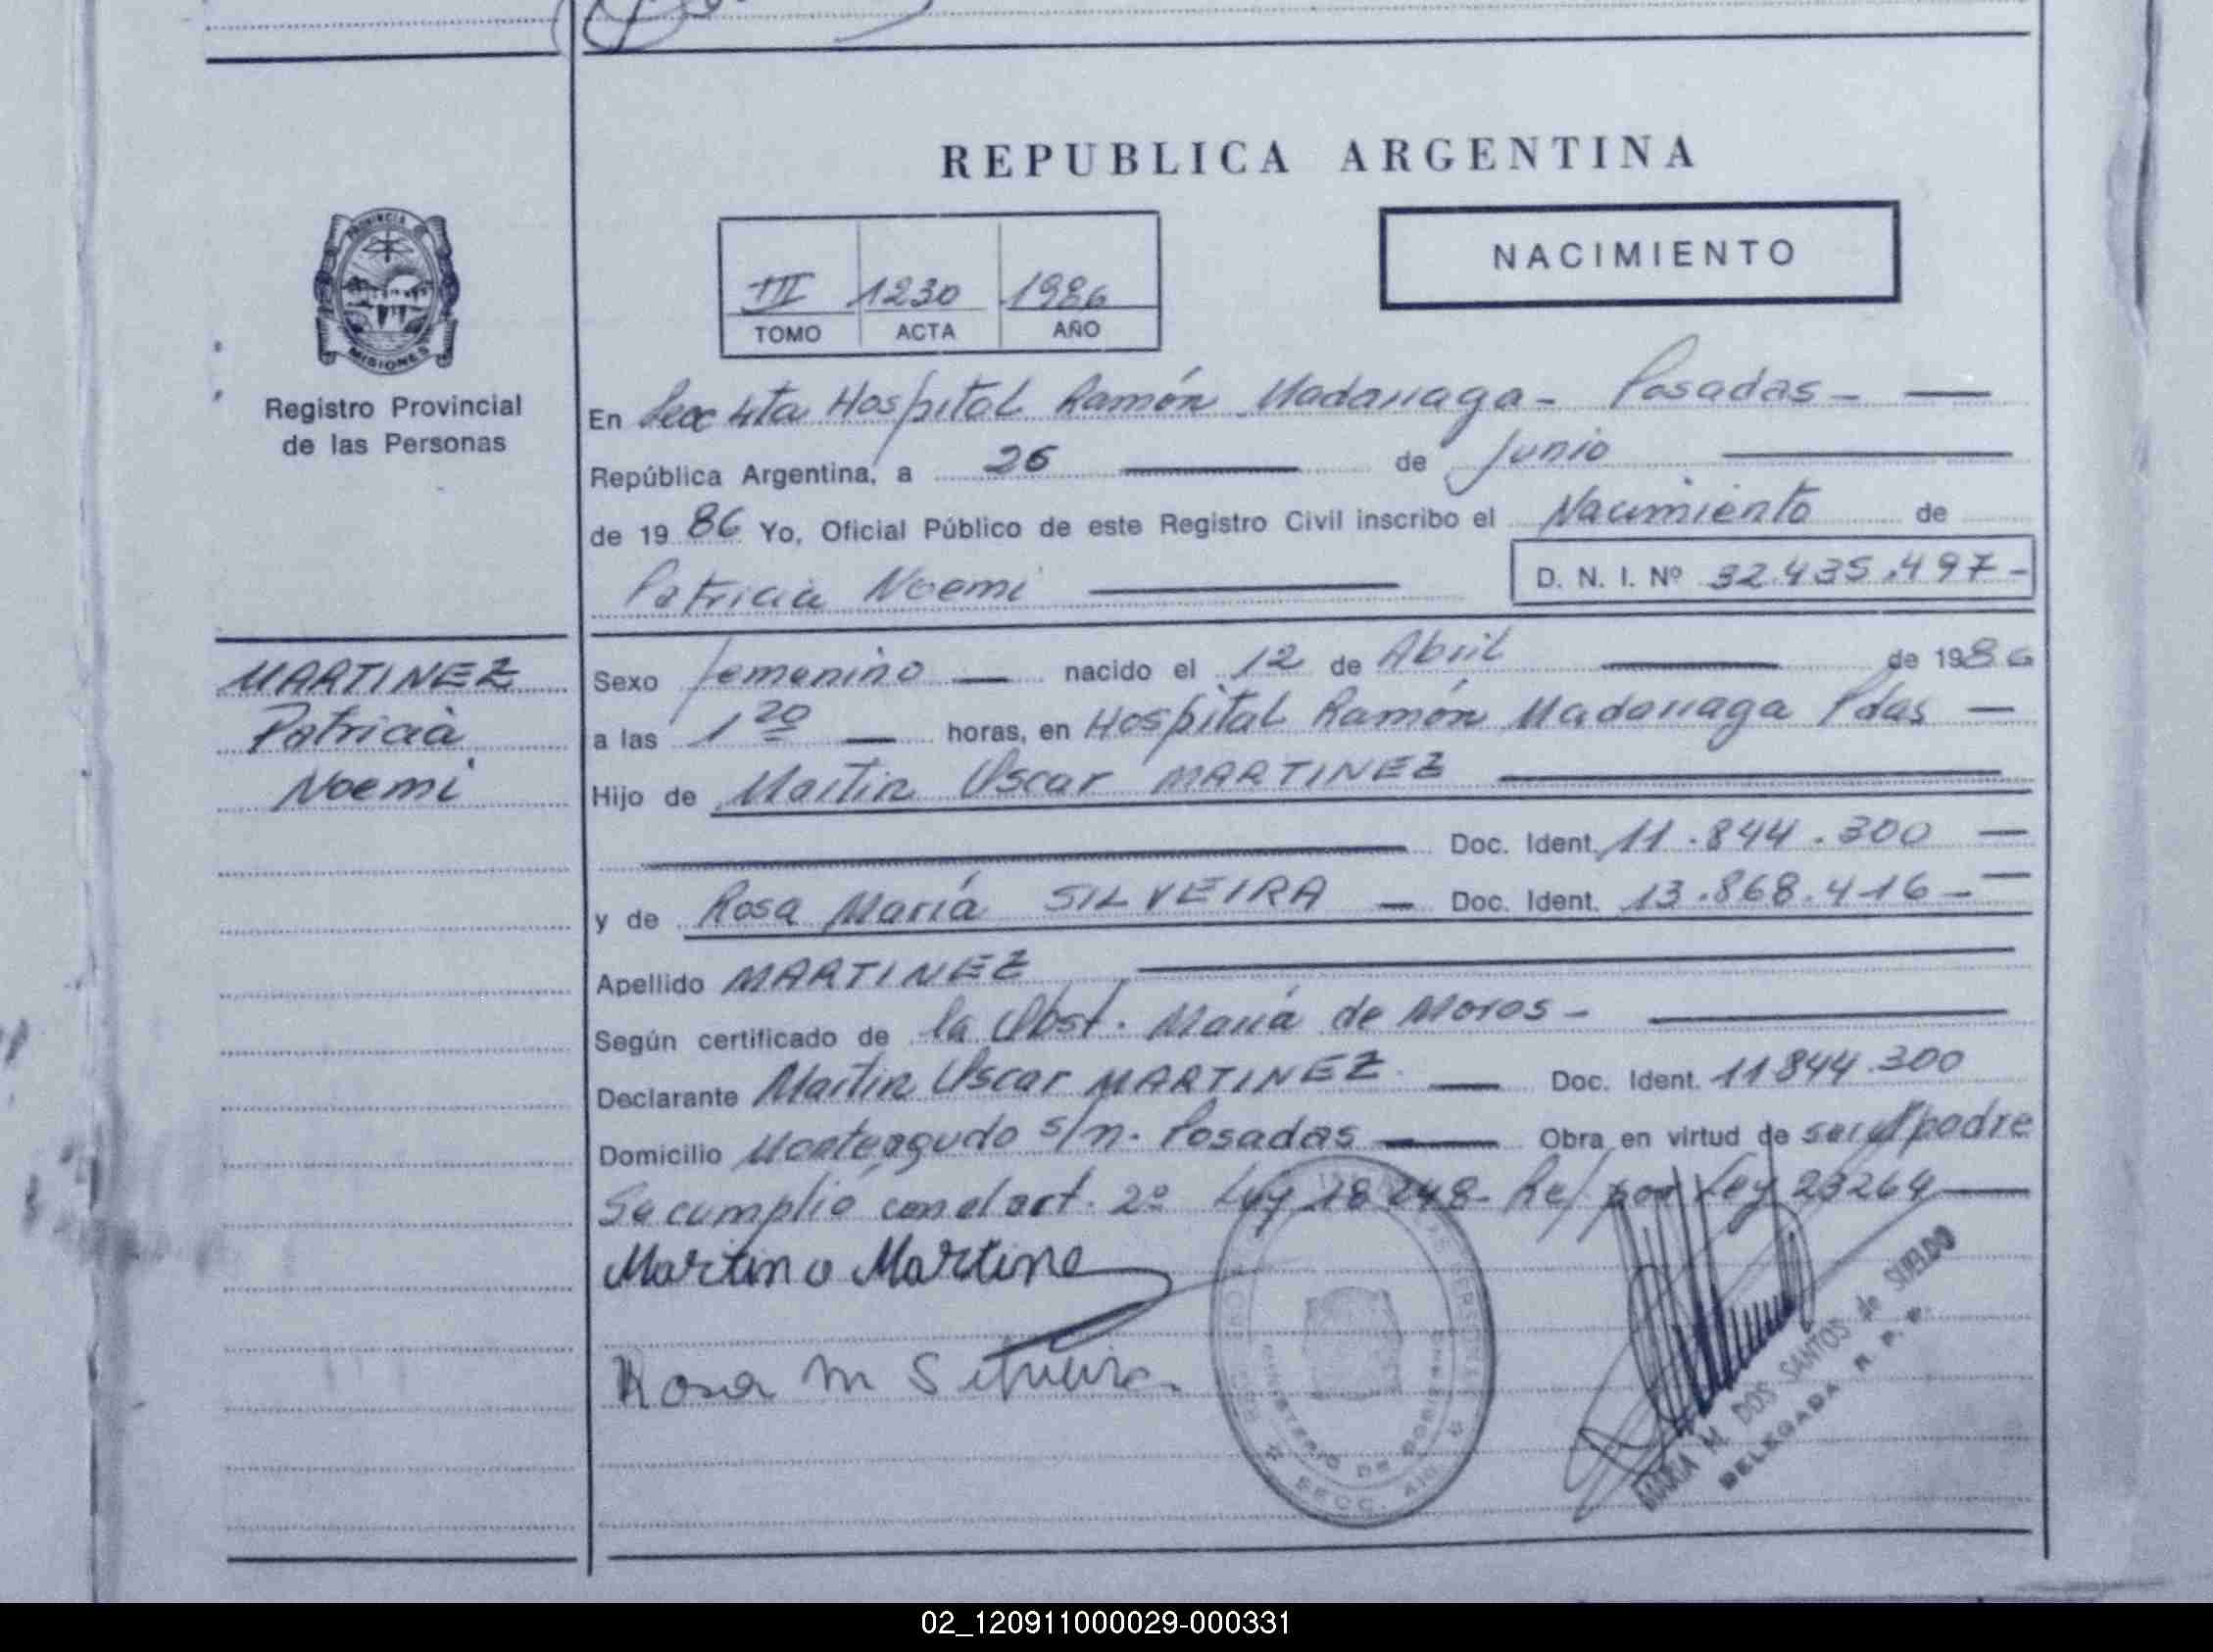 REPUBLICA ARGENTINA
NACIMIENTO
III 1230 1986
TOMO ACTA AÑO
PROVINCIA DE
MISIONES
Registro Provincial
de las Personas
En Secc 4ta Hospital Ramón Madariaga - Posadas -
República Argentina, a 26 de Junio
de 1986 Yo, Oficial Público de este Registro Civil inscribo el Nacimiento de
Patricia Noemi D. N. I. Nº 32.435.497-
MARTINEZ
Patricia
Noemi
Sexo femenino nacido el 12 de Abril de 1986
a las 1 20 horas, en Hospital Ramón Madariaga Pdas
Hijo de Martin Oscar MARTINEZ
Doc. Ident. 11.844.300
y de Rosa María SILVEIRA Doc. Ident. 13.868.416-
Apellido MARTINEZ
Según certificado de la Obst. María de Moros -
Declarante Martin Oscar MARTINEZ Doc. Ident. 11844.300
Domicilio Monteagudo s/n. Posadas Obra en virtud de ser el padre
Se cumplió con el art. 2º Ley 18248 - Re/ por Ley 23264
Martino Martine
Rosa M Silveira
MINISTERIO DE GOBIERNO
SECC. 4TA
MARIA M. DOS SANTOS de SUELDO
DELEGADA R. P. P.
02_120911000029-000331